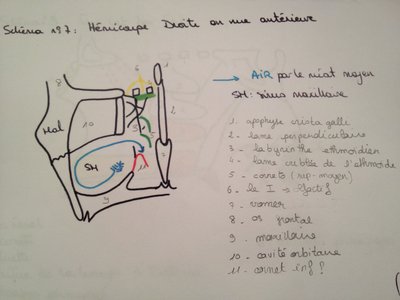 Schéma n°7 : Hémicorps Droite en vue antérieure
→ AIR par le méat moyen
SH: sinus maxillaire
1. apophyse crista galli
2. lame perpendiculaire
3. labyrinthe ethmoïdien
4. lame criblée de l'ethmoïde
5. cornets (sup. moyen)
6. le I olfactif
7. vomer
8. os frontal
9. maxillaire
10. cavité orbitaire
11. cornet inf ?
8
Mal
10
SH
11
9